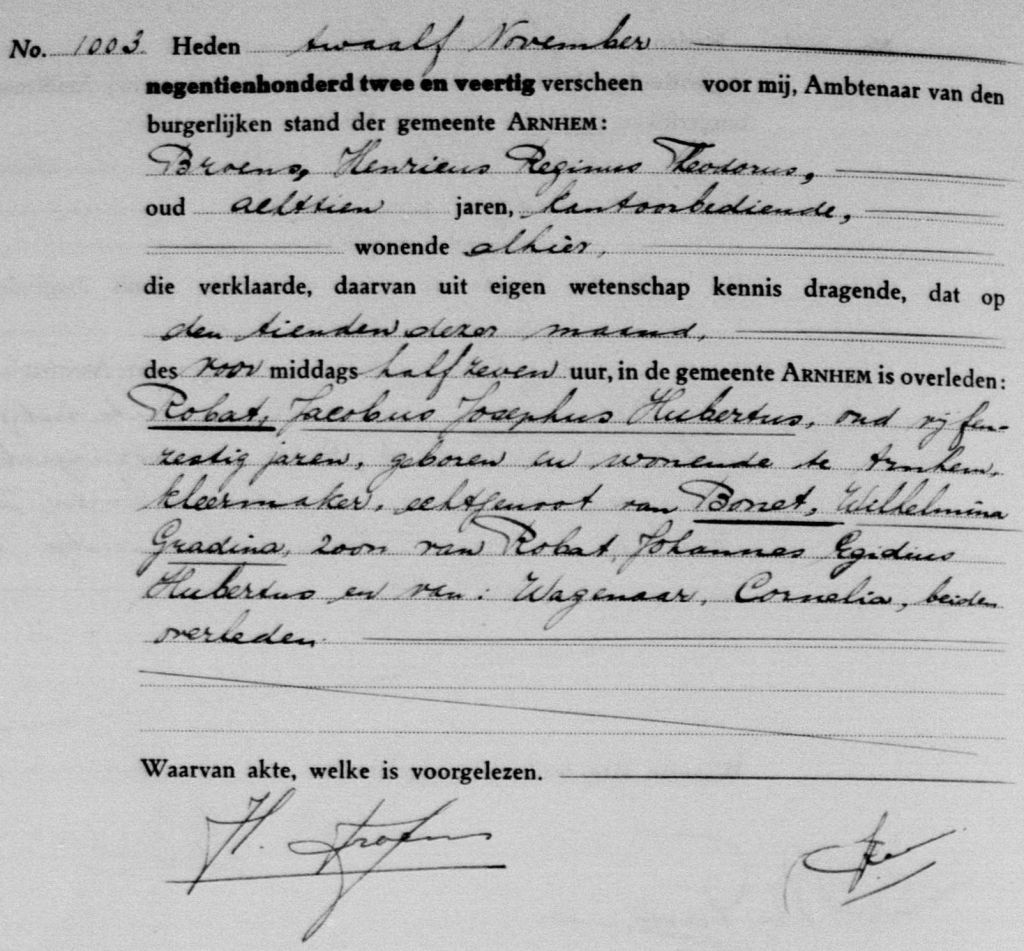 No. 1003 Heden twaalf November
negentienhonderd twee en veertig verscheen voor mij, Ambtenaar van den
burgerlijken stand der gemeente ARNHEM:
Broens, Henricus Reginus Theodorus,
oud achttien jaren, kantoorbediende,
wonende alhier,
die verklaarde, daarvan uit eigen wetenschap kennis dragende, dat op
den tienden dezer maand,
des voor middags half zeven uur, in de gemeente ARNHEM is overleden:
Robat, Jacobus Josephus Hubertus, oud vijfen-
zestig jaren, geboren en wonende te Arnhem,
kleermaker, echtgenoot van Bonet, Wilhelmina
Gradina, zoon van Robat, Johannes Egidius
Hubertus en van: Wagenaar, Cornelia, beiden
overleden.
Waarvan akte, welke is voorgelezen.
H.